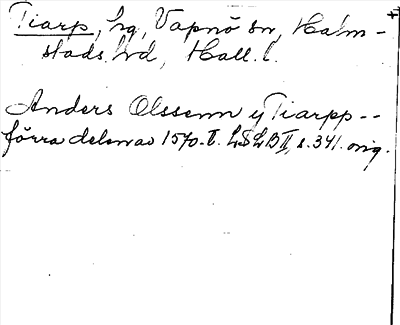 Tiarp, hg, Vapnö sn, Halm-
stads hd, Hall. l.
Anders Olssenn y Tiarpp--
förra delen av 1570-t. LSLB II, s. 341. orig.